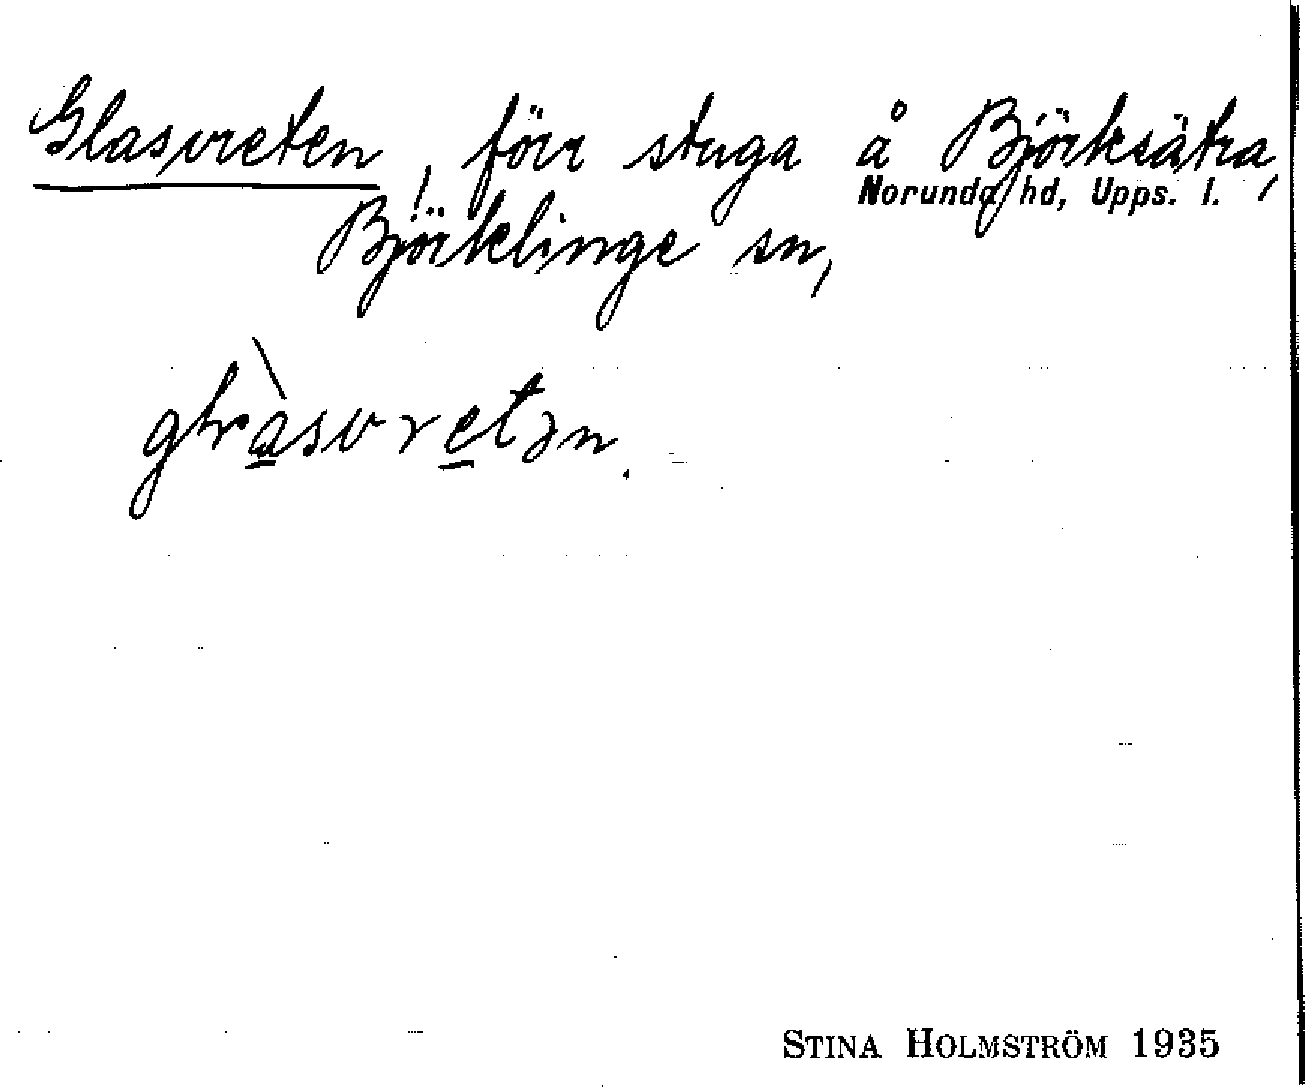 Glasvreten, förr stuga å Björksätra,
Norunda hd, Upps. l.
Björklinge sn,
glràsvretən.
STINA HOLMSTRÖM 1935